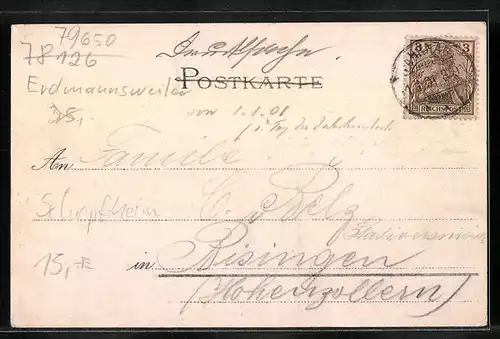 79650
78126
Drucksache.
3 3
REICHSPOST
POSTKARTE
Erdmannsweiler
von 1.1.01
75,-
1. Tag des Jahrhunderts
An Familie
C. Belz
Schopfheim
15,-
in Bisingen
(Hohenzollern)